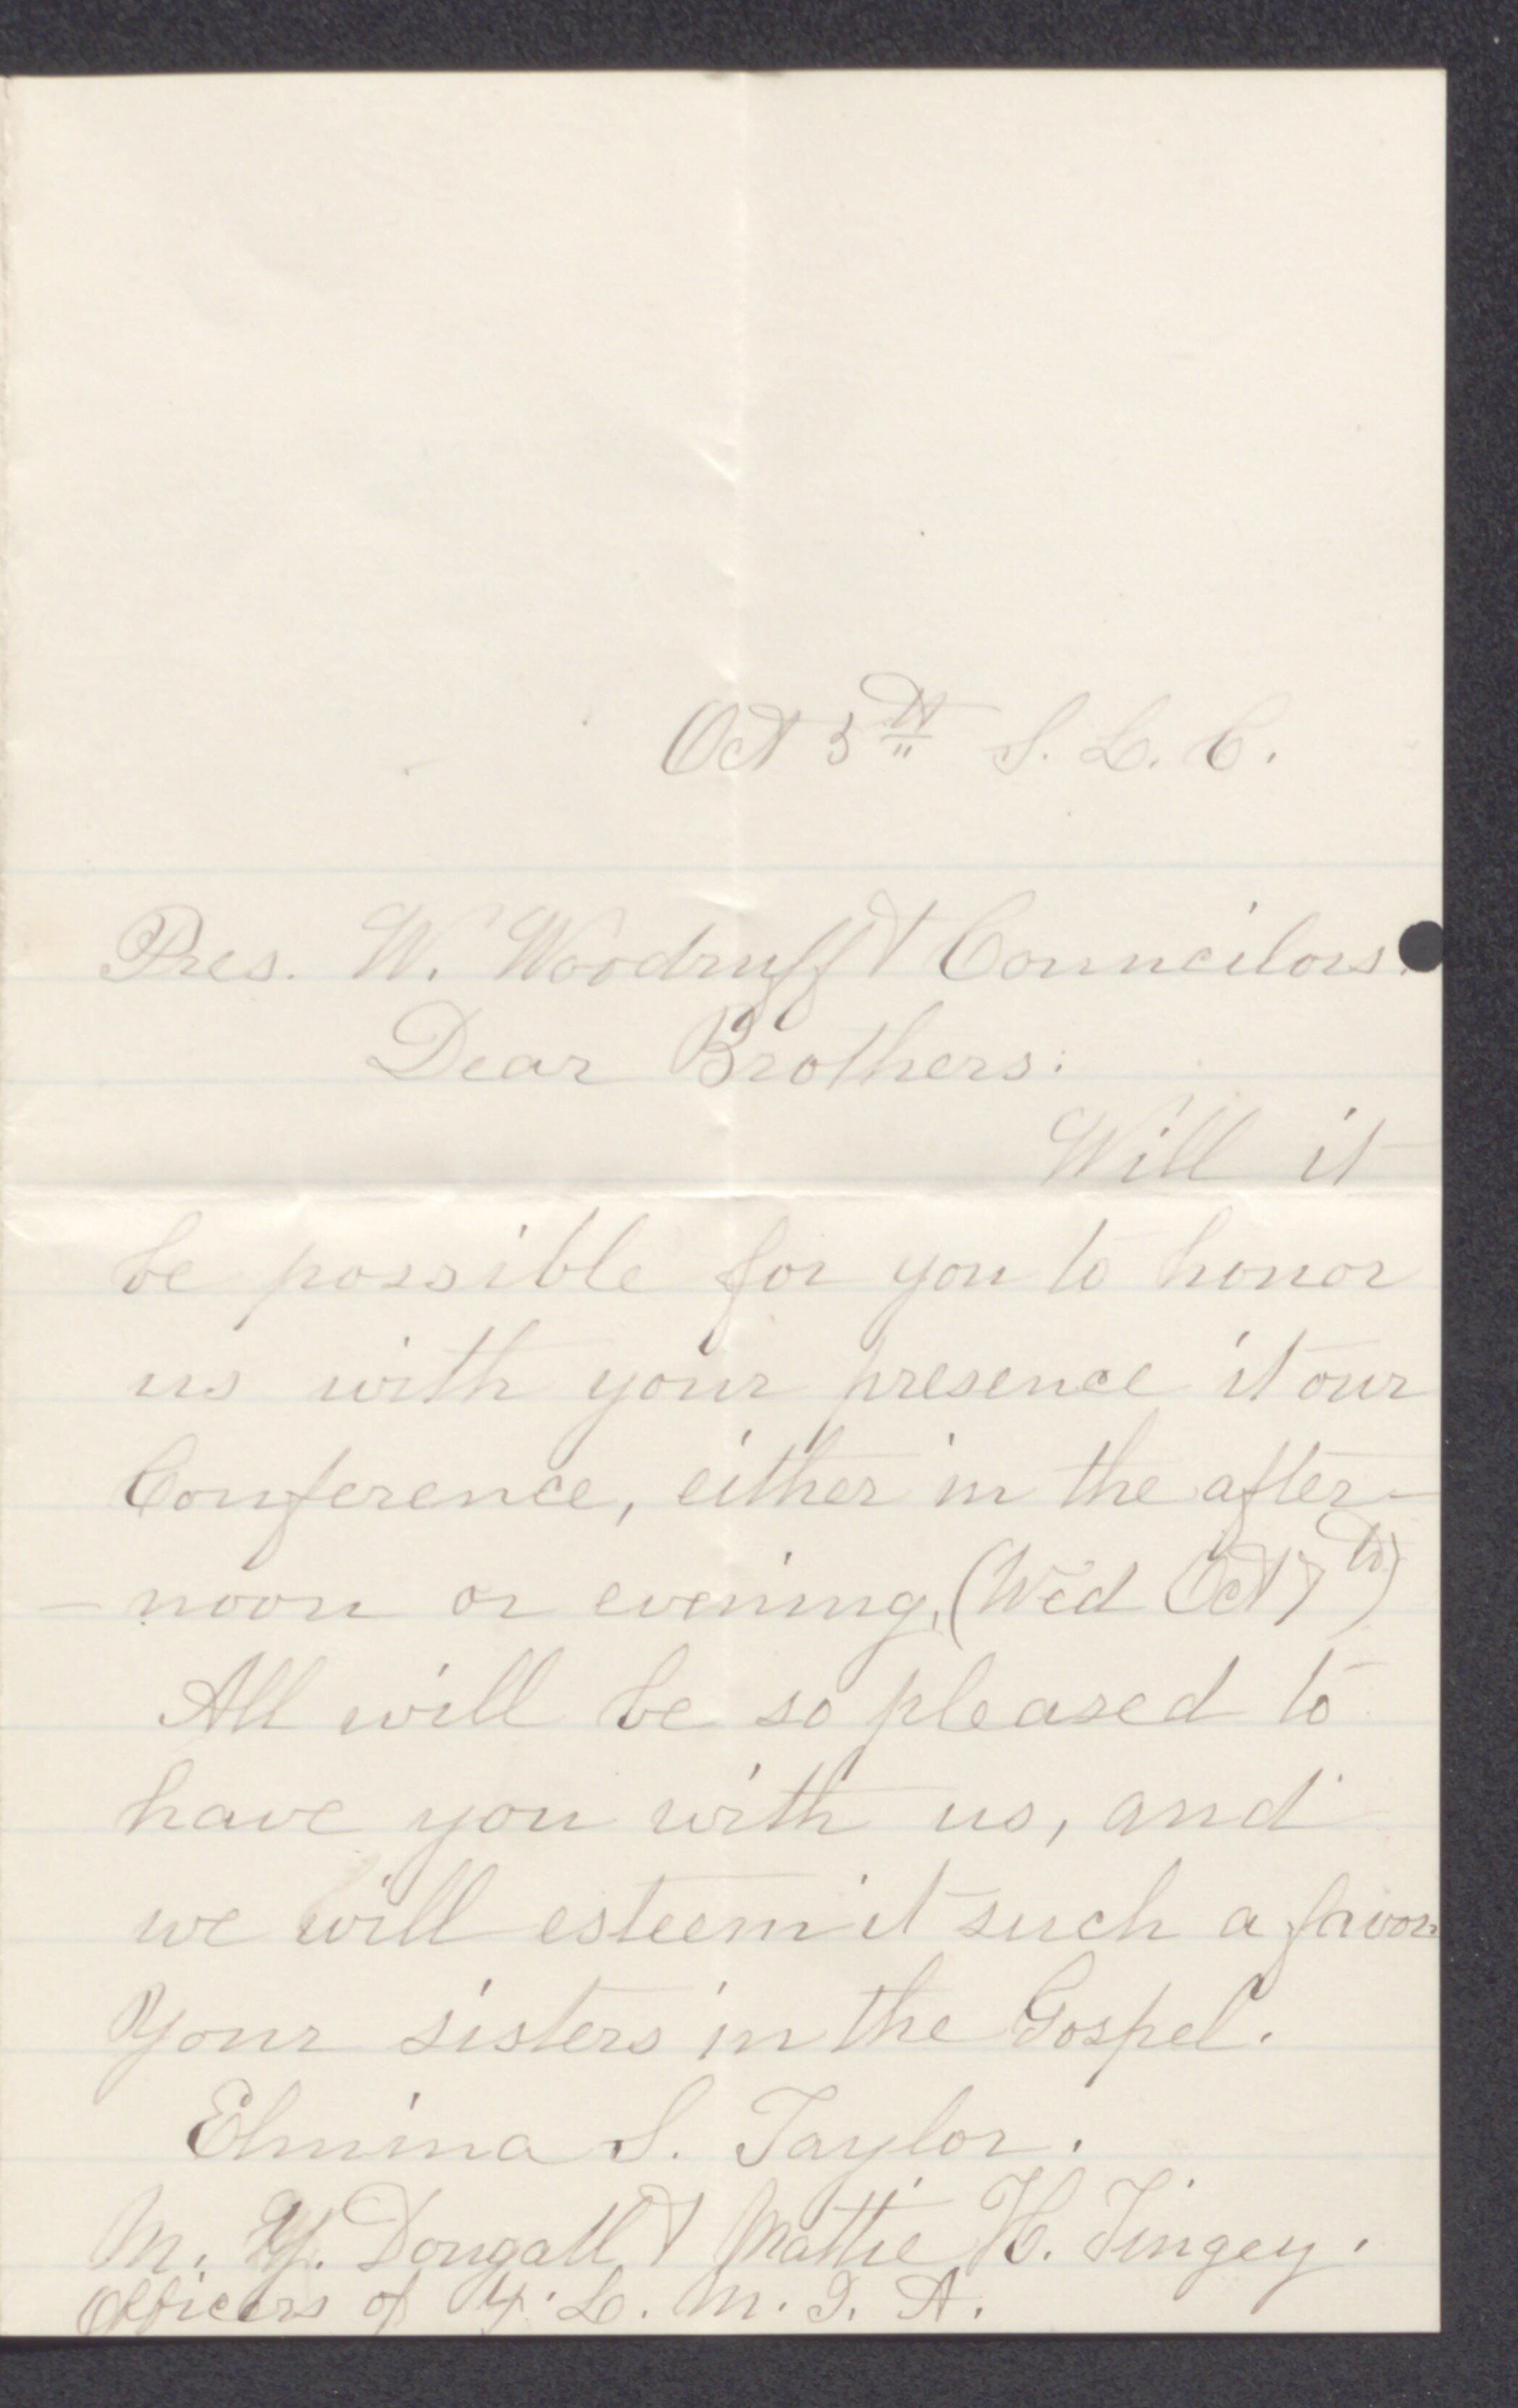 Oct 5th S. L. C.
Pres. W. Woodruff & Councilors.
Dear Brothers:
Will it
be possible for you to honor
us with your presence it our
Conference, either in the after-
-noon or evening, (Wed Oct 7th)
All will be so pleased to
have you with us, and
we will esteem it such a favor
Your sisters in the Gospel.
Elmina S. Taylor.
M. Y. Dougall & Mattie H. Tingey.
Officers of Y. L. M. I. A.